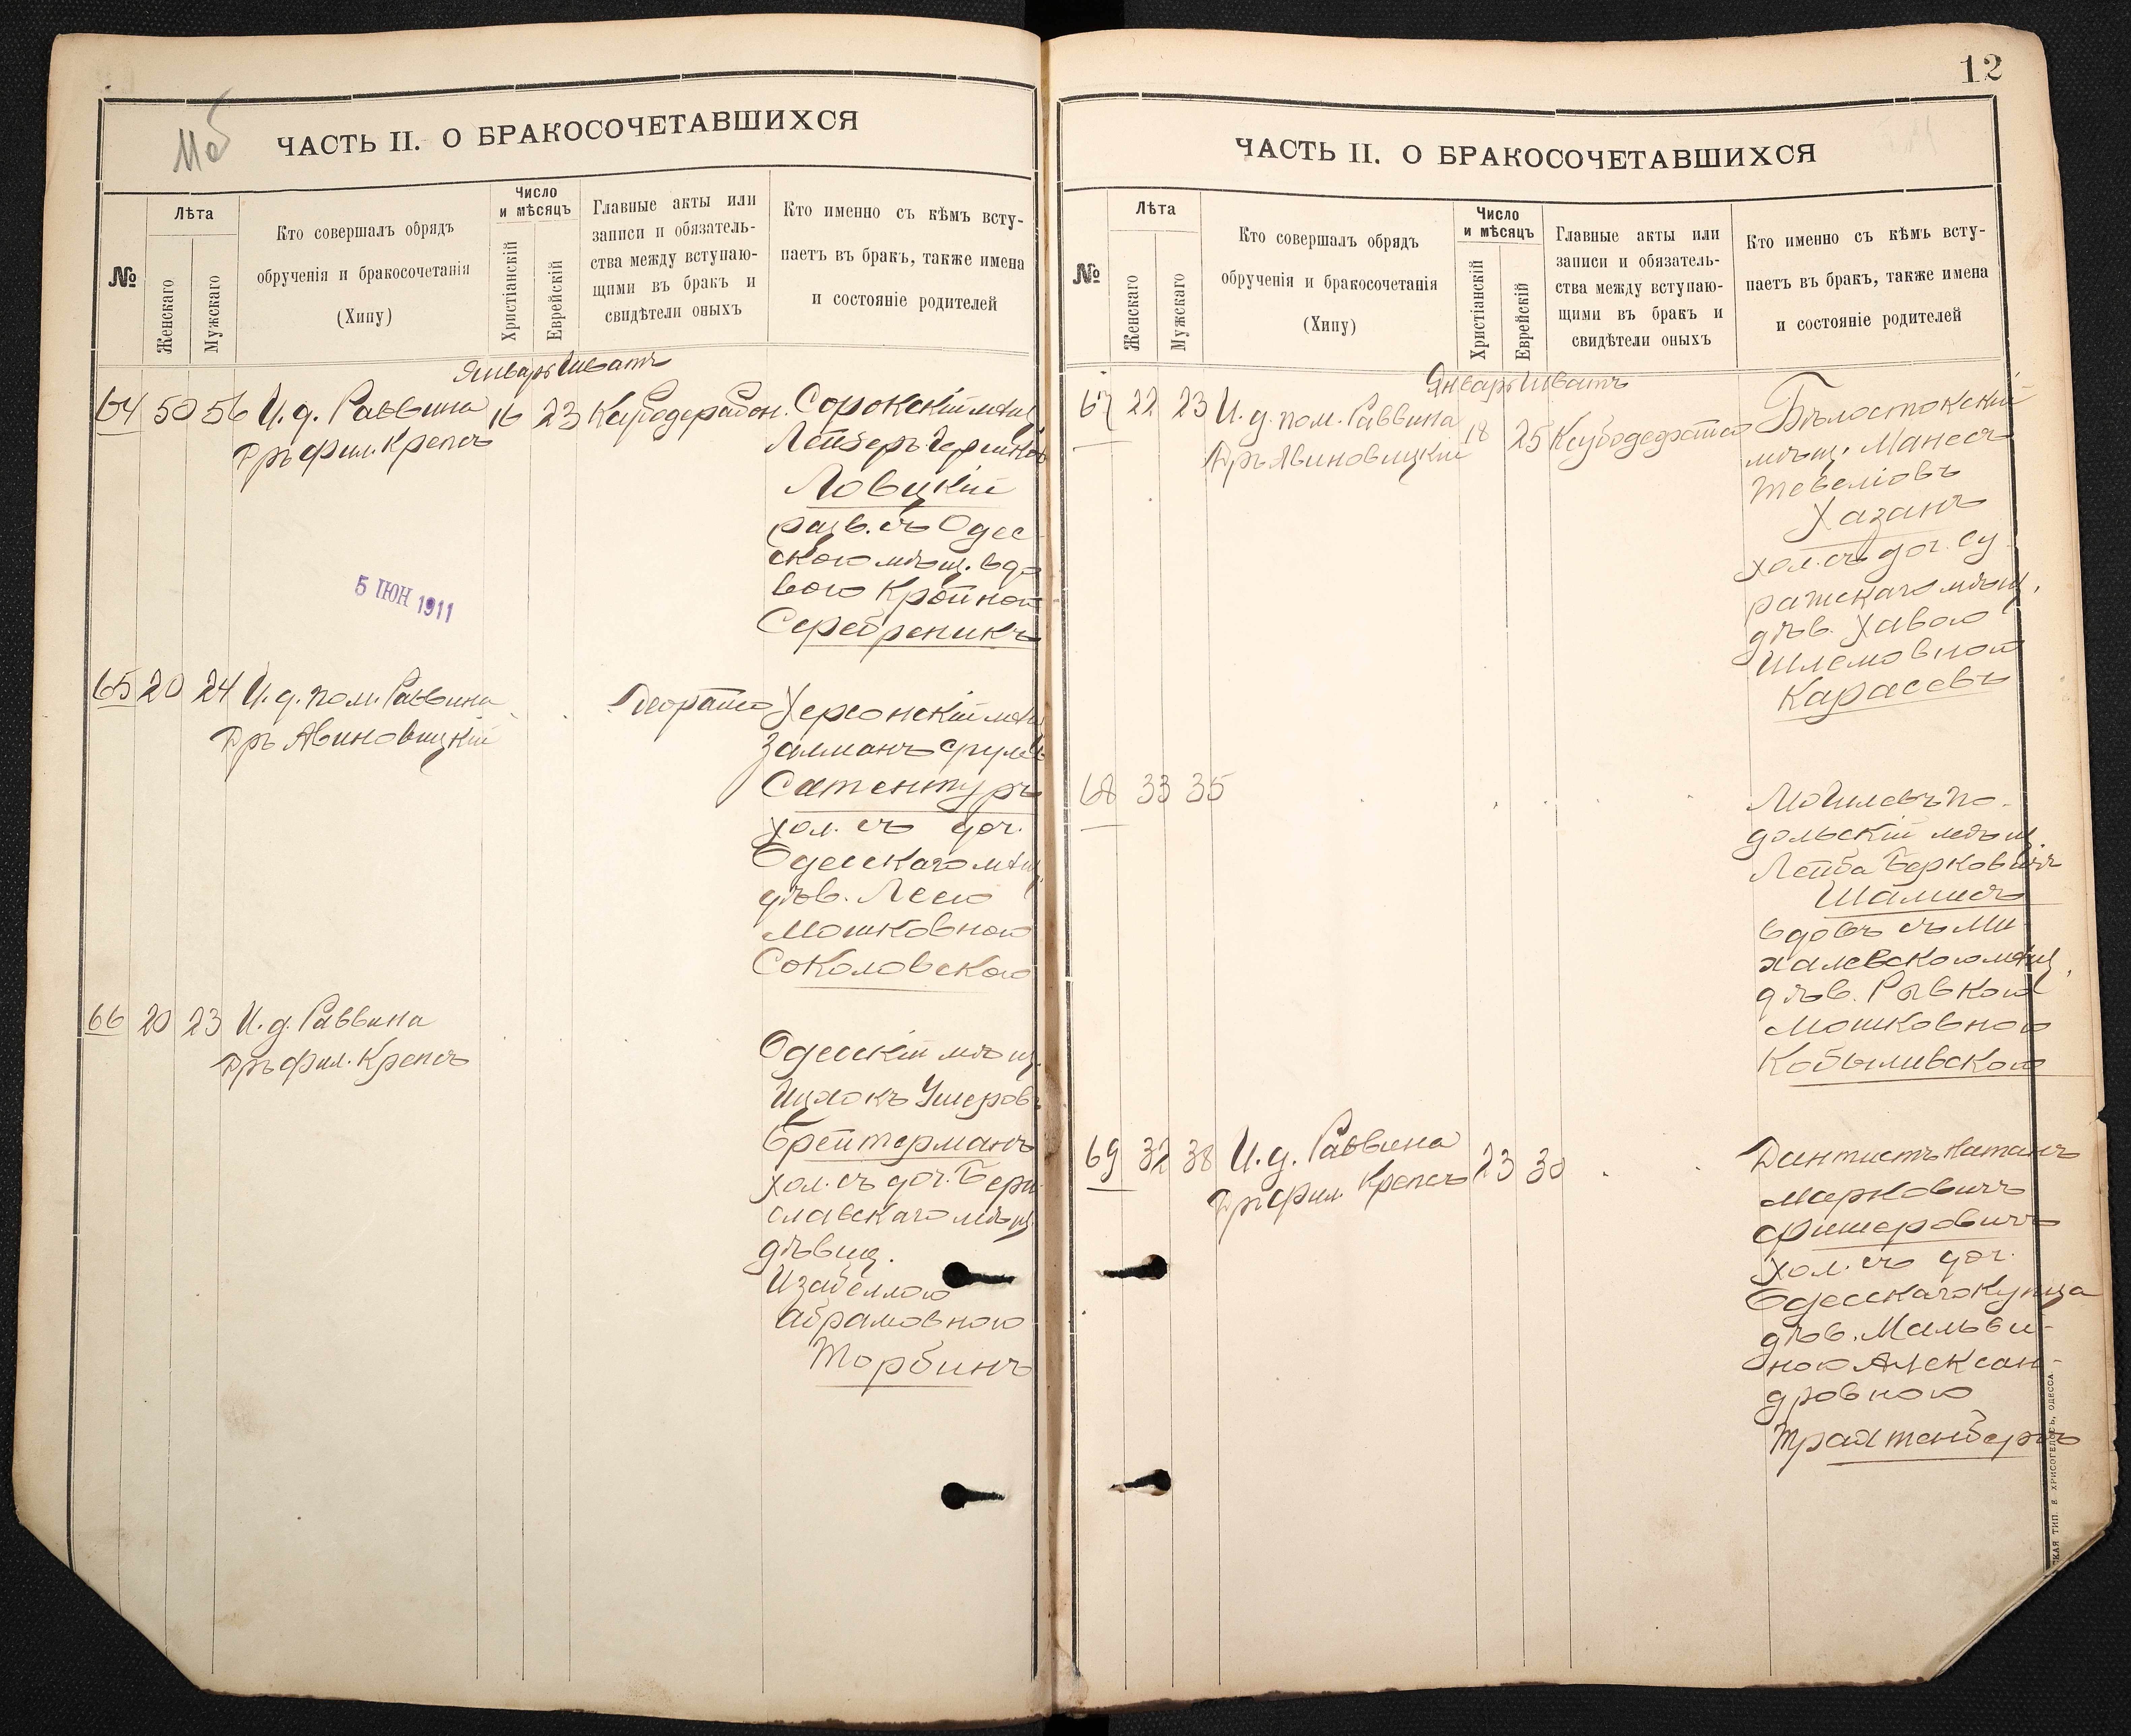 Мѣб
ЧАСТЬ II. О БРАКОСОЧЕТАВШИХСЯ
№
Лѣта
Женскаго
Мужскаго
Кто совершалъ обрядъ
обрученія и бракосочетанія
(Хипу)
Число
и мѣсяцъ
Христіанскій
Еврейскій
Главные акты или
записи и обязатель-
ства между вступаю-
щими въ бракъ и
свидѣтели оныхъ
Кто именно съ кѣмъ всту-
паетъ въ бракъ, также имена
и состояніе родителей
Январь Шватъ
64 50 56 И. д. Раввина 16 23 Сорокскій мѣщ.
Дръ фил. Крепсъ Лейзеръ
Ловцкій
разв. съ Одес-
скою мѣщ. вдо-
вою Кройной
Серебреникъ
5 ІЮН 1911
65 20 24 И. д. пом. Раввина Херсонскій мѣщ.
Дръ Авиновицкій Залманъ Сруле
Сатентуръ
хол. съ доч.
Одесскаго мѣщ.
дѣв. Леею
Мошковною
Соколовскою
66 20 23 И. д. Раввина
Дръ фил. Крепсъ Одесскій мѣщ.
Ицхокъ Ушеровъ
Брейтерманъ
хол. съ доч. Бери-
славскаго мѣщ.
дѣвиц.
Изабеллою
Абрамовною
Торбинъ
12
ЧАСТЬ II. О БРАКОСОЧЕТАВШИХСЯ
№
Лѣта
Женскаго
Мужскаго
Кто совершалъ обрядъ
обрученія и бракосочетанія
(Хипу)
Число
и мѣсяцъ
Христіанскій
Еврейскій
Главные акты или
записи и обязатель-
ства между вступаю-
щими въ бракъ и
свидѣтели оныхъ
Кто именно съ кѣмъ всту-
паетъ въ бракъ, также имена
и состояніе родителей
Январь Шватъ
67 22 23 И. д. пом. Раввина 18 25 Бѣлостокскій
Дръ Авиновицкій мѣщ. Манесъ
Тевеліовъ
Хазанъ
хол. съ доч. Су-
ражскаго мѣщ.
дѣв. Хавою
Шлемовною
Карасевъ
68 33 35 Могилевъ по-
дольскій мѣщ.
Лейба Берковичъ
Шамисъ
вдовъ съ Ми-
халевскою мѣщ.
дѣв. Рывкою
Мошковною
Кобыливскою
69 32 38 И. д. Раввина 23 30 Дантистъ Натанъ
Дръ фил. Крепсъ Марковичъ
Фишеровичъ
хол. съ доч.
Одесскаго Купца
дѣв. Мальви-
ною Алексан-
дровною
Трахтенбергъ
КАЯ ТИП. Е. ХРИСОГЕЛОСЪ, ОДЕССА.